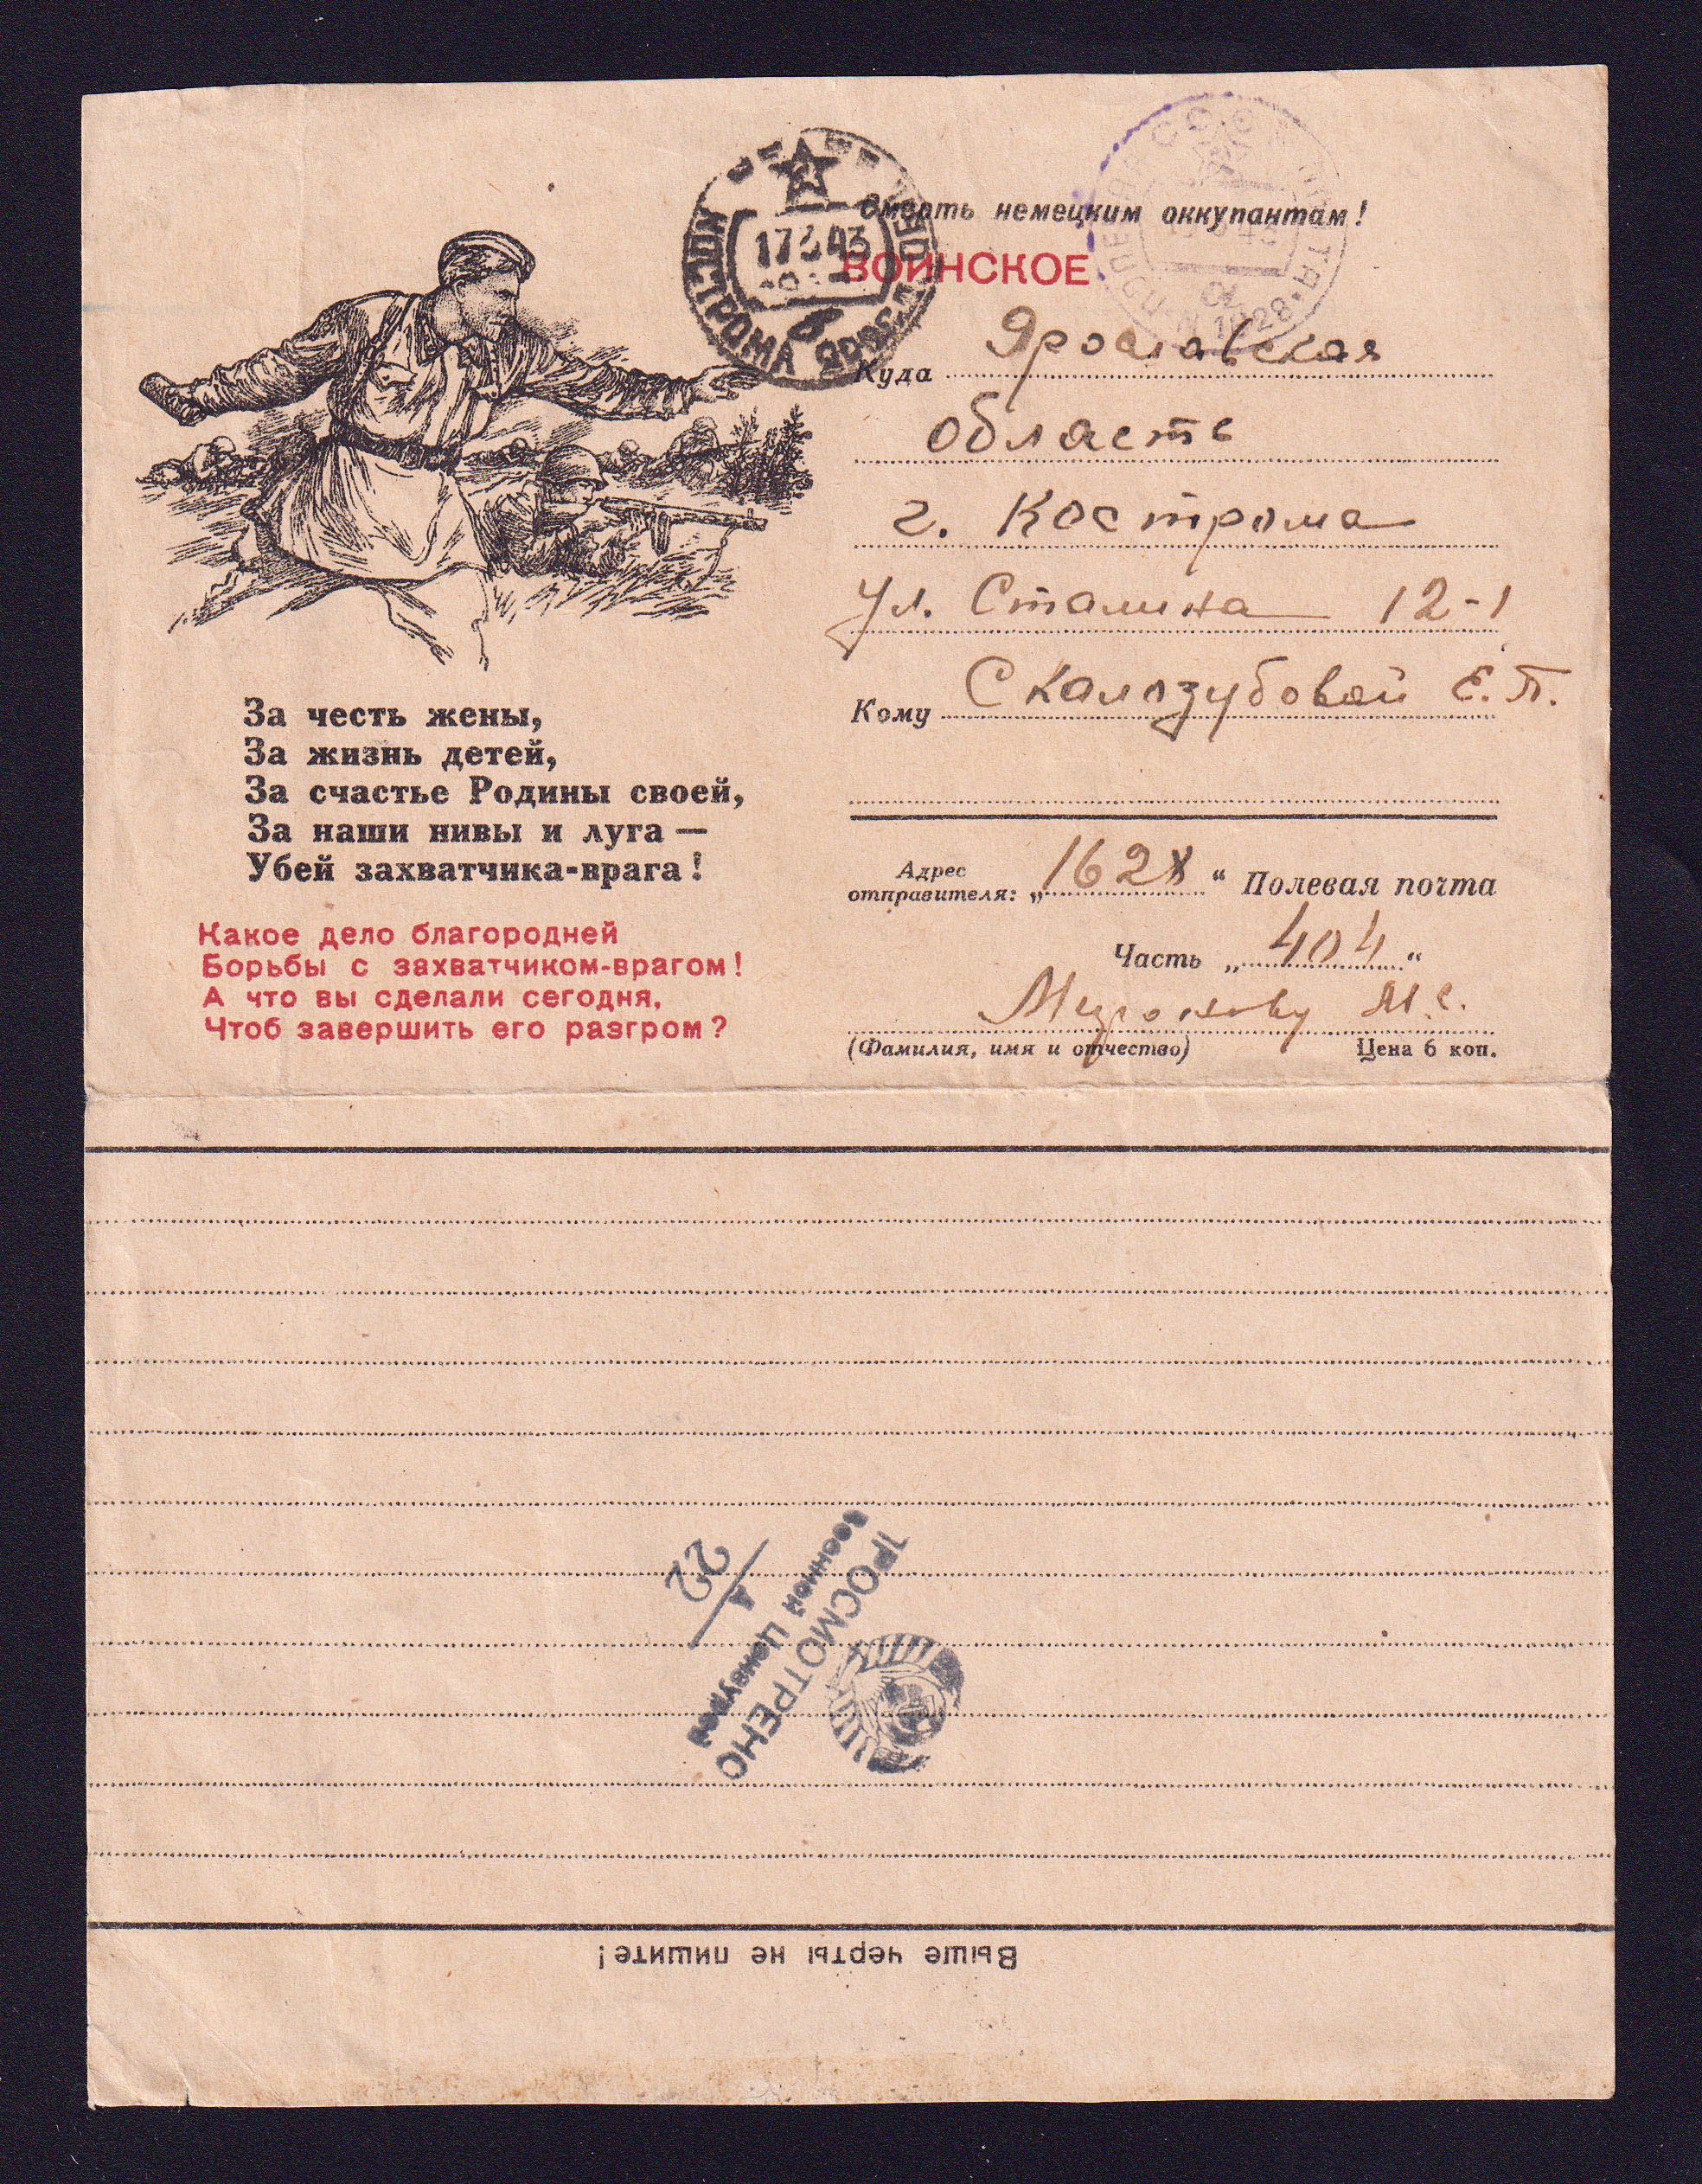 Смерть немецким оккупантам!
ВОИНСКОЕ
КОСТРОМА
17 3 43
в
1028
Куда Ярославская
область
г. Кострома
ул. Сталина 12-1
Кому Скалозубовой Е. П.
За честь жены,
За жизнь детей,
За счастье Родины своей,
За наши нивы и луга —
Убей захватчика-врага!
Какое дело благородней
Борьбы с захватчиком-врагом!
А что вы сделали сегодня,
Чтоб завершить его разгром?
Адрес
отправителя: „ “ Полевая почта
Часть „404“
М. С.
(Фамилия, имя и отчество) Цена 6 коп.
ПРОСМОТРЕНО
Военной Цензурой
22
Выше черты не пишите!